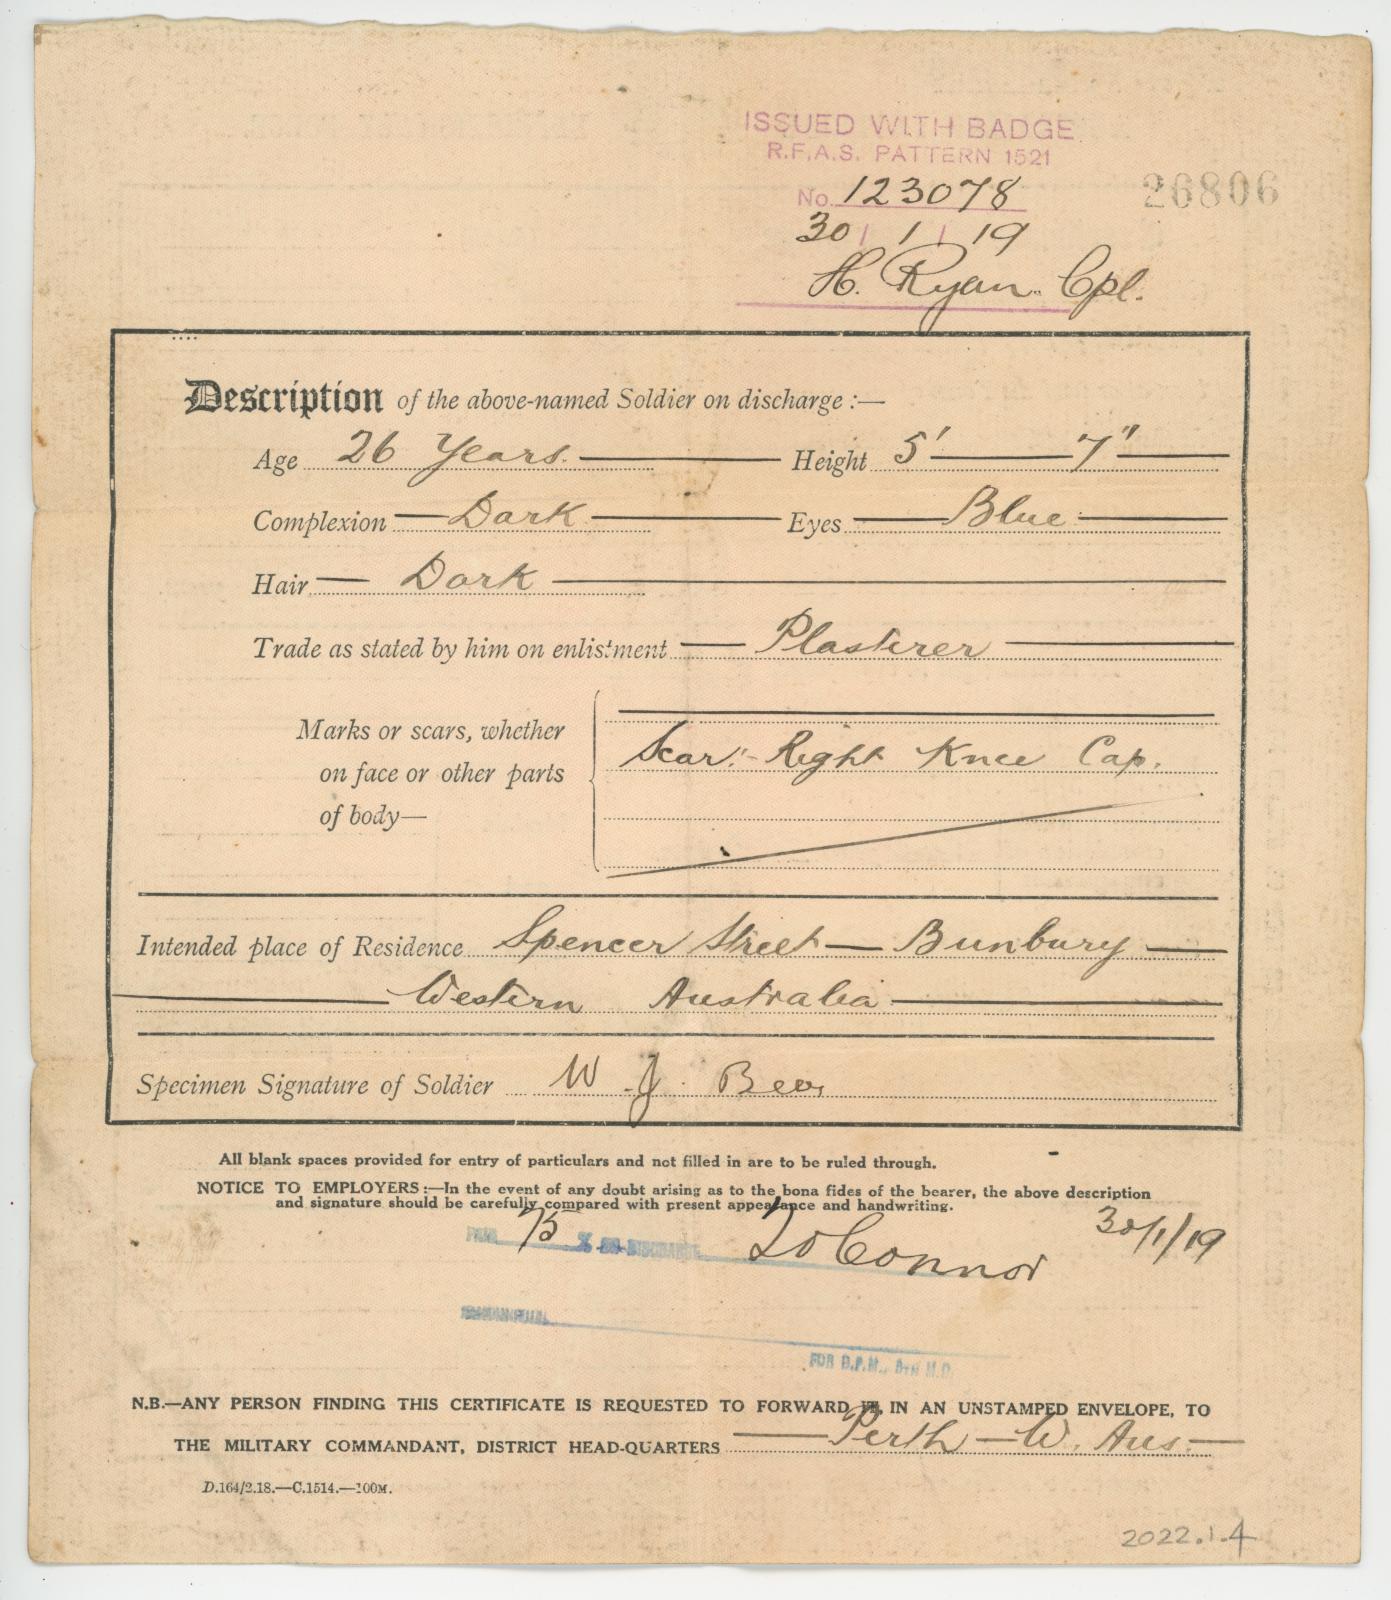 ISSUED WITH BADGE
R.F.A.S. PATTERN 1521
No. 123078
26806
30 / 1 / 19
H. Ryan. Cpl.
Description of the above-named Soldier on discharge :—
Age 26 Years. Height 5' 7"
Complexion Dark Eyes Blue
Hair Dark
Trade as stated by him on enlistment Plasterer
Marks or scars, whether
on face or other parts
of body—
Scar:- Right Knee Cap.
Intended place of Residence Spencer Street — Bunbury
Western Australia
Specimen Signature of Soldier W. J. Bee
All blank spaces provided for entry of particulars and not filled in are to be ruled through.
NOTICE TO EMPLOYERS:—In the event of any doubt arising as to the bona fides of the bearer, the above description
and signature should be carefully compared with present appearance and handwriting.
75 % ON DISCHARGE
O'Connor 30/1/19
FOR D.P.M., 5TH M.D.
N.B.—ANY PERSON FINDING THIS CERTIFICATE IS REQUESTED TO FORWARD IT, IN AN UNSTAMPED ENVELOPE, TO
THE MILITARY COMMANDANT, DISTRICT HEAD-QUARTERS Perth — W. Aus.
D.164/2.18.—C.1514.—100M.
2022.1.4